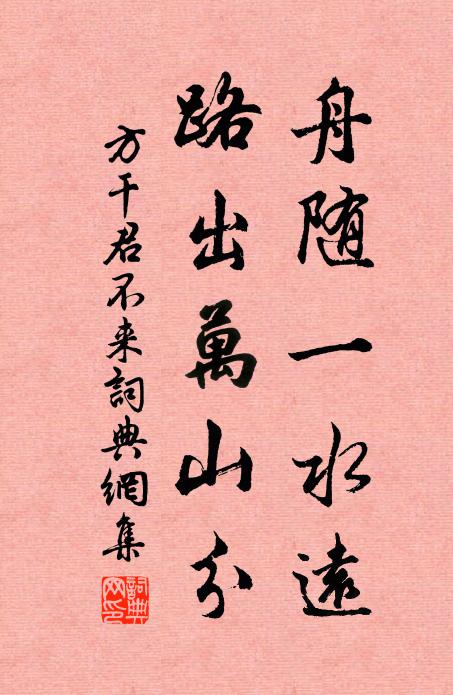 舟随一水遠
路出萬山分
方干君不来詞典網集
詞典網印